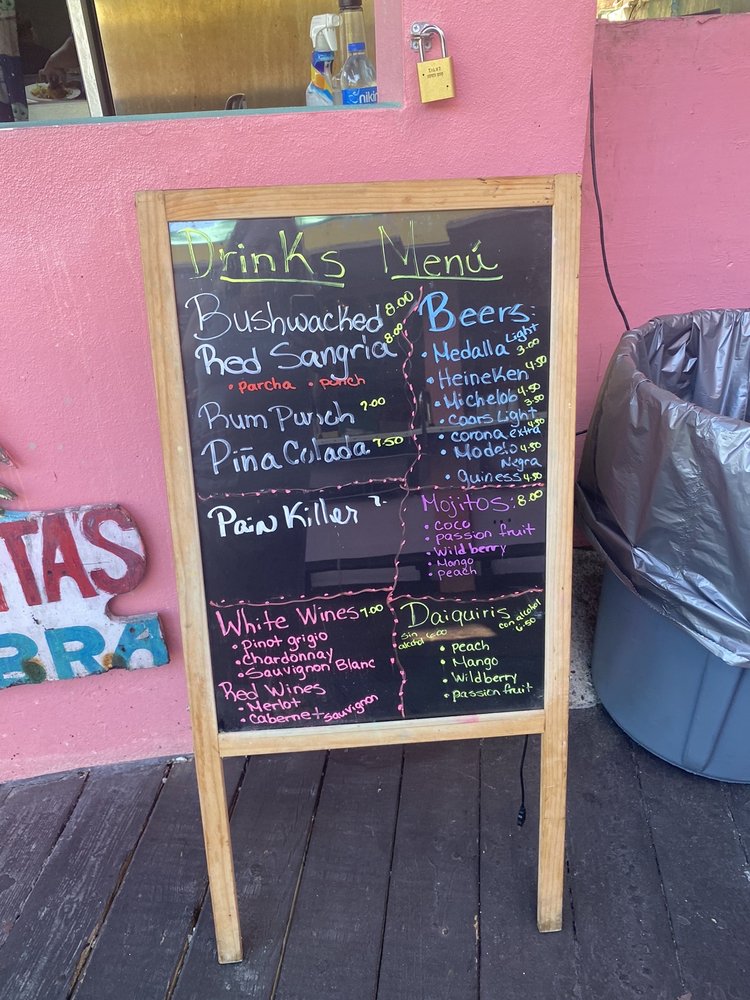 Drinks Menú
Bushwacked 8.00
Red Sangria 8.00
• Parcha • Punch
Rum Punch 7.00
Piña Colada 7.50
Pain Killer 7.
White Wines 7.00
• Pinot grigio
• Chardonnay
• Sauvignon Blanc
Red Wines
• Merlot
• Cabernet Sauvignon
Beers:
• Medalla Light 3.00
• Heineken 4.50
• Michelob 4.50
• Coors Light 3.50
• Corona extra 4.50
• Modelo Negra 4.50
• Guiness 4.50
Mojitos: 8.00
• Coco
• passion fruit
• Wildberry
• Mango
• Peach
Daiquiris
sin alcohol 6.00
con alcohol 6.50
• Peach
• Mango
• Wildberry
• passion fruit
TAS
BRA